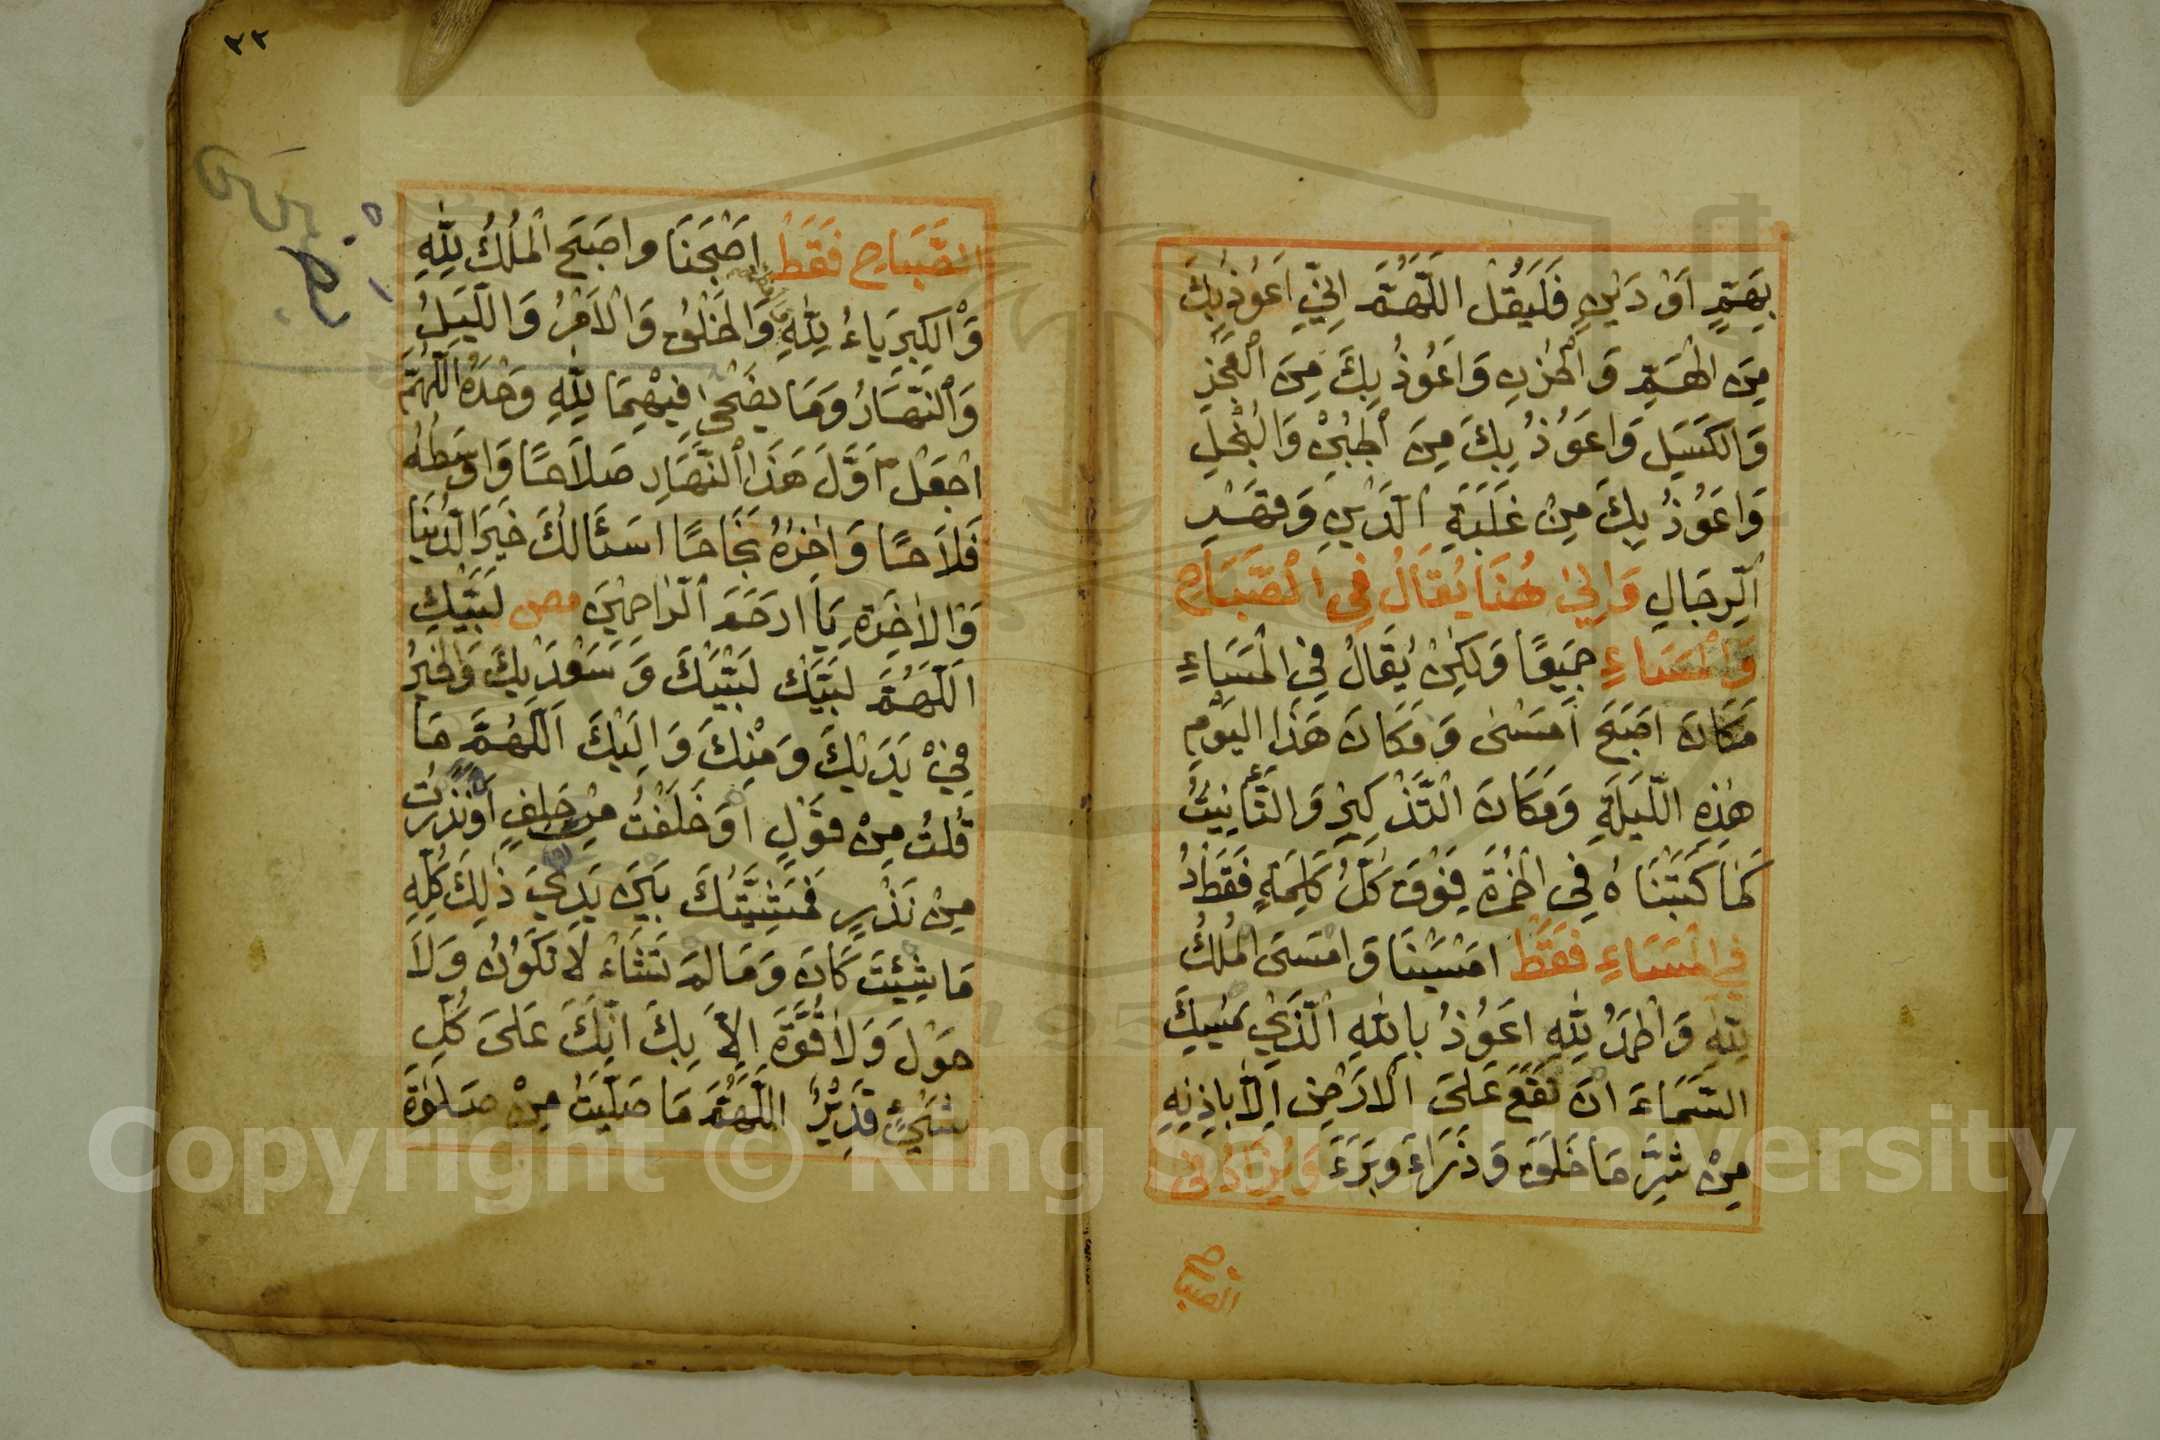 بِهَمٍّ اَوْ دَيْنٍ فَلْيَقُلْ اَللّٰهُمَّ اِنِّي اَعُوْذُ بِكَ
مِنَ الْهَمِّ وَالْحُزْنِ وَاَعُوْذُ بِكَ مِنَ الْعَجْزِ
وَالْكَسَلِ وَاَعُوْذُ بِكَ مِنَ الْجُبْنِ وَالْبُخْلِ
وَاَعُوْذُ بِكَ مِنْ غَلَبَةِ الدَّيْنِ وَقَهْرِ
الرِّجَالِ وَاِلٰى هُنَا يُقَالُ فِي الصَّبَاحِ
وَالْمَسَاءِ جَمِيْعًا وَلٰكِنْ يُقَالُ فِي الْمَسَاءِ
مَكَانَ اَصْبَحَ اَمْسٰى وَمَكَانَ هٰذَا الْيَوْمِ
هٰذِهِ اللَّيْلَةِ وَمَكَانَ التَّذْكِيْرِ وَالتَّأْنِيْثُ
كَمَا كَتَبْنَاهُ فِي الْحُمْرَةِ فَوْقَ كُلِّ كَلِمَةٍ فَقَطْ
فِي الْمَسَاءِ فَقَطْ اَمْسَيْنَا وَاَمْسَى الْمُلْكُ
لِلّٰهِ وَالْحَمْدُ لِلّٰهِ اَعُوْذُ بِاللّٰهِ الَّذِيْ يُمْسِكُ
السَّمَاءَ اَنْ تَقَعَ عَلَى الْاَرْضِ اِلَّا بِاِذْنِهِ
مِنْ شَرِّ مَا خَلَقَ وَذَرَاَ وَبَرَءَ وَيُزَادُ فِي
الصباح
٣٣
الصَّبَاحِ فَقَطْ اَصْبَحْنَا وَاَصْبَحَ الْمُلْكُ لِلّٰهِ
وَالْكِبْرِيَاءُ لِلّٰهِ وَالْخَلْقُ وَالْاَمْرُ وَاللَّيْلُ
وَالنَّهَارُ وَمَا يَضْحٰى فِيْهِمَا لِلّٰهِ وَحْدَهُ اَللّٰهُمَّ
اجْعَلْ اَوَّلَ هٰذَا النَّهَارِ صَلَاحًا وَاَوْسَطَهُ
فَلَاحًا وَاٰخِرَهُ نَجَاحًا اَسْئَالُكَ خَيْرَ الدُّنْيَا
وَالْاٰخِرَةِ يَا اَرْحَمَ الرَّاحِمِيْنَ مص لَبَّيْكَ
اَللّٰهُمَّ لَبَّيْكَ لَبَّيْكَ وَسَعْدَيْكَ وَالْخَيْرُ
فِيْ يَدَيْكَ وَمِنْكَ وَاِلَيْكَ اَللّٰهُمَّ مَا
قُلْتُ مِنْ قَوْلٍ اَوْ حَلَفْتُ مِنْ حَلِفٍ اَوْ نَذَرْتُ
مِنْ نَذْرٍ فَمَشِيَّتُكَ بَيْنَ يَدَيْ ذٰلِكَ كُلِّهِ
مَا شِئْتَ كَانَ وَمَا لَمْ تَشَاْءْ لَا يَكُوْنُ وَلَا
حَوْلَ وَلَا قُوَّةَ اِلَّا بِكَ اِنَّكَ عَلٰى كُلِّ
شَيْءٍ قَدِيْرٌ اَللّٰهُمَّ مَا صَلَّيْتُ مِنْ صَلٰوةٍ
Copyright © King Saud University